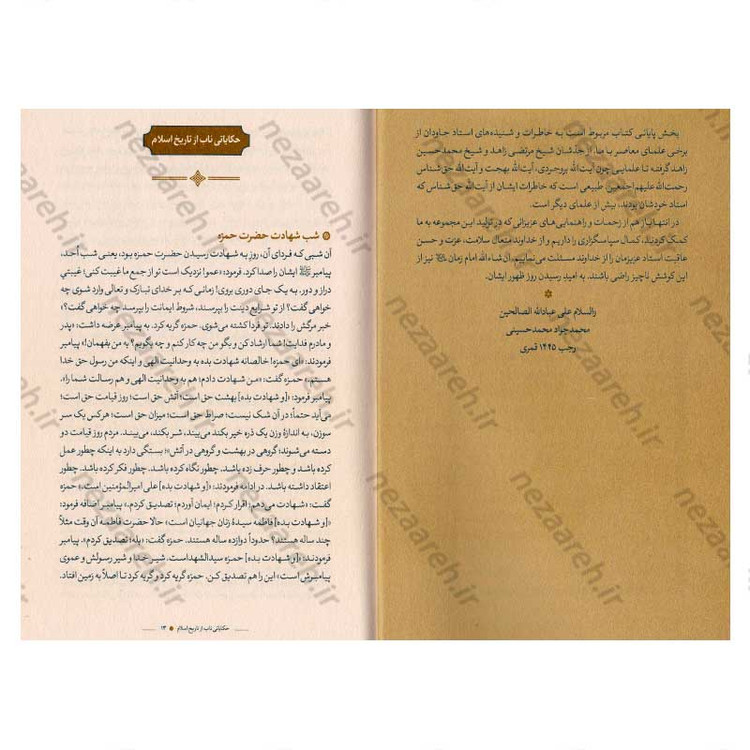 بخش پایانی کتاب مربوط است به خاطرات و شنیده‌های استاد جاودان از
برخی علمای معاصر با ما. از جدّشان شیخ مرتضی زاهد و شیخ محمدحسین
زاهد گرفته تا علمایی چون آیت‌الله بروجردی، آیت‌الله بهجت و آیت‌الله حق‌شناس
رحمت‌الله علیهم اجمعین. طبیعی است که خاطرات ایشان از آیت‌الله حق‌شناس که
استاد خودشان بودند، بیش از علمای دیگر است.
در انتها نیاز هم از زحمات و راهنمایی‌های عزیزانی که در تولید این مجموعه به ما
کمک کردند، کمال سپاسگزاری را داریم و از خداوند متعال سلامت، عزت و حسن
عاقبت استاد عزیزمان را از خداوند مسئلت می‌نماییم. ان‌شاءالله امام زمان نیز از
این کوشش ناچیز راضی باشند. به امید رسیدن روز ظهور ایشان.
والسلام علی عبادالله الصالحین
محمدجواد محمدحسینی
رجب ۱۴۴۵ قمری
حکایاتی ناب از تاریخ اسلام
شب شهادت حضرت حمزه
آن شبی که فردای آن، روز به شهادت رسیدن حضرت حمزه بود، یعنی شب اُحد،
پیامبر ﷺ ایشان را صدا کرد. فرمود: «عمو! نزدیک است تو از جمع ما غیبت کنی؛ غیبتی
دراز و دور. به یک جای دوری بروی! زمانی که بر خدای تبارک و تعالی وارد شوی چه
خواهی گفت؟ از تو شرایع دینت را بپرسند، شروط ایمانت را بپرسند چه خواهی گفت؟»
خبر مرگش را دادند. تو فردا کشته می‌شوی. حمزه گریه کرد. به پیامبر عرضه داشت: «پدر
و مادرم فدایت! شما ارشاد کن و بگو من چه کار کنم و چه بگویم؟ به من بفهمان!» پیامبر
فرمودند: «ای حمزه! خالصانه شهادت بده به وحدانیت الهی و اینکه من رسول حق خدا
هستم.» حمزه گفت: «من شهادت دادم؛ هم به وحدانیت الهی و هم رسالت شما را».
پیامبر فرمود: «[و شهادت بده] بهشت حق است؛ آتش حق است؛ این روز قیامت حق است؛
می‌آید حتماً؛ در آن شک نیست؛ صراط حق است؛ میزان حق است؛ هرکس یک سر
سوزن، به اندازهٔ وزن یک ذره خیر بکند می‌بیند، شر بکند، می‌بیند. مردم روز قیامت دو
دسته می‌شوند؛ گروهی در بهشت و گروهی در آتش؛» بستگی دارد به اینکه چطور عمل
کرده باشد و چطور حرف زده باشد. چطور نگاه کرده باشد. چطور فکر کرده باشد. چطور
اعتقاد داشته باشد. در ادامه فرمودند: «[و شهادت بده] علی امیرالمؤمنین است.» حمزه
گفت: «شهادت می‌دهم؛ اقرار کردم؛ ایمان آوردم؛ تصدیق کردم.» پیامبر اضافه فرمود:
«[و شهادت بده] فاطمه سیدهٔ زنان جهانیان است.» حالا حضرت فاطمه آن وقت مثلاً
چند ساله هستند؟ حدوداً دوازده ساله هستند. حمزه گفت: «بله؛ تصدیق کردم.» پیامبر
فرمودند: «[و شهادت بده] حمزه سیدالشهداست. شیر خدا و شیر رسولش و عموی
پیامبرش است.» این را هم تصدیق کن. حمزه گریه کرد و گریه کرد تا اصلاً به زمین افتاد.
حکایاتی ناب از تاریخ اسلام ۱۳
nezaareh.ir